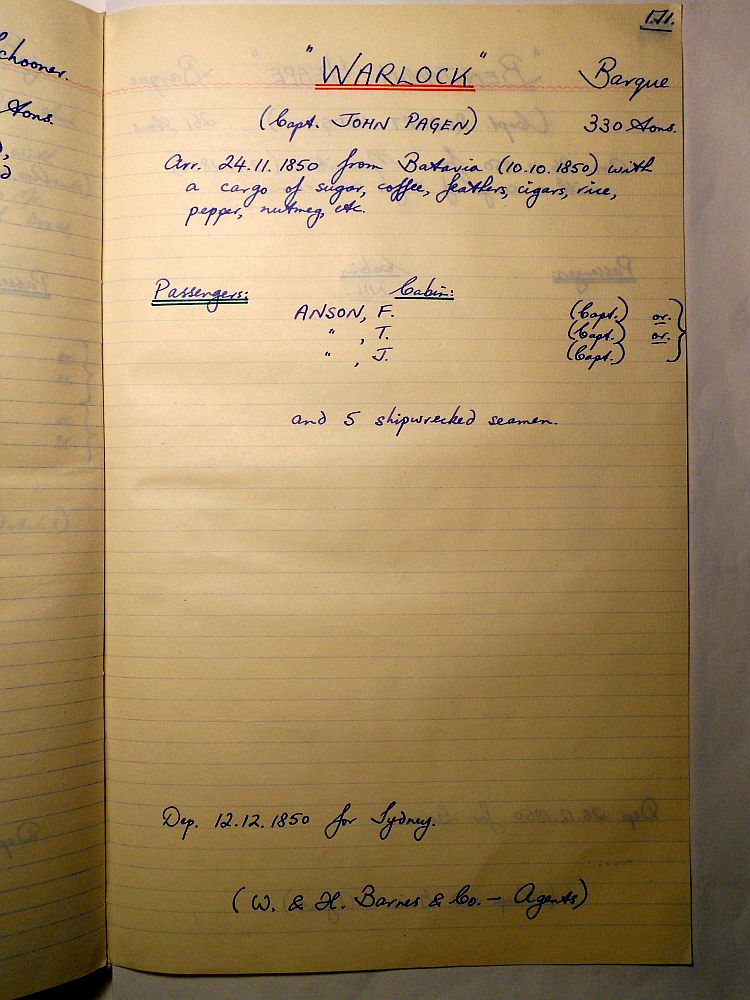 chooner.
tons.
171.
"WARLOCK"
Barque
(Capt. JOHN PAGEN)
330 tons.
Arr. 24.11.1850 from Batavia (10.10.1850) with
a cargo of sugar, coffee, feathers, cigars, rice,
pepper, nutmeg, etc.
Passengers:
Cabin:
ANSON, F. (Capt.) or.
" , T. (Capt.) or.
" , J. (Capt.)
and 5 shipwrecked seamen.
Dep. 12.12.1850 for Sydney.
(W. & H. Barnes & Co. – Agents)